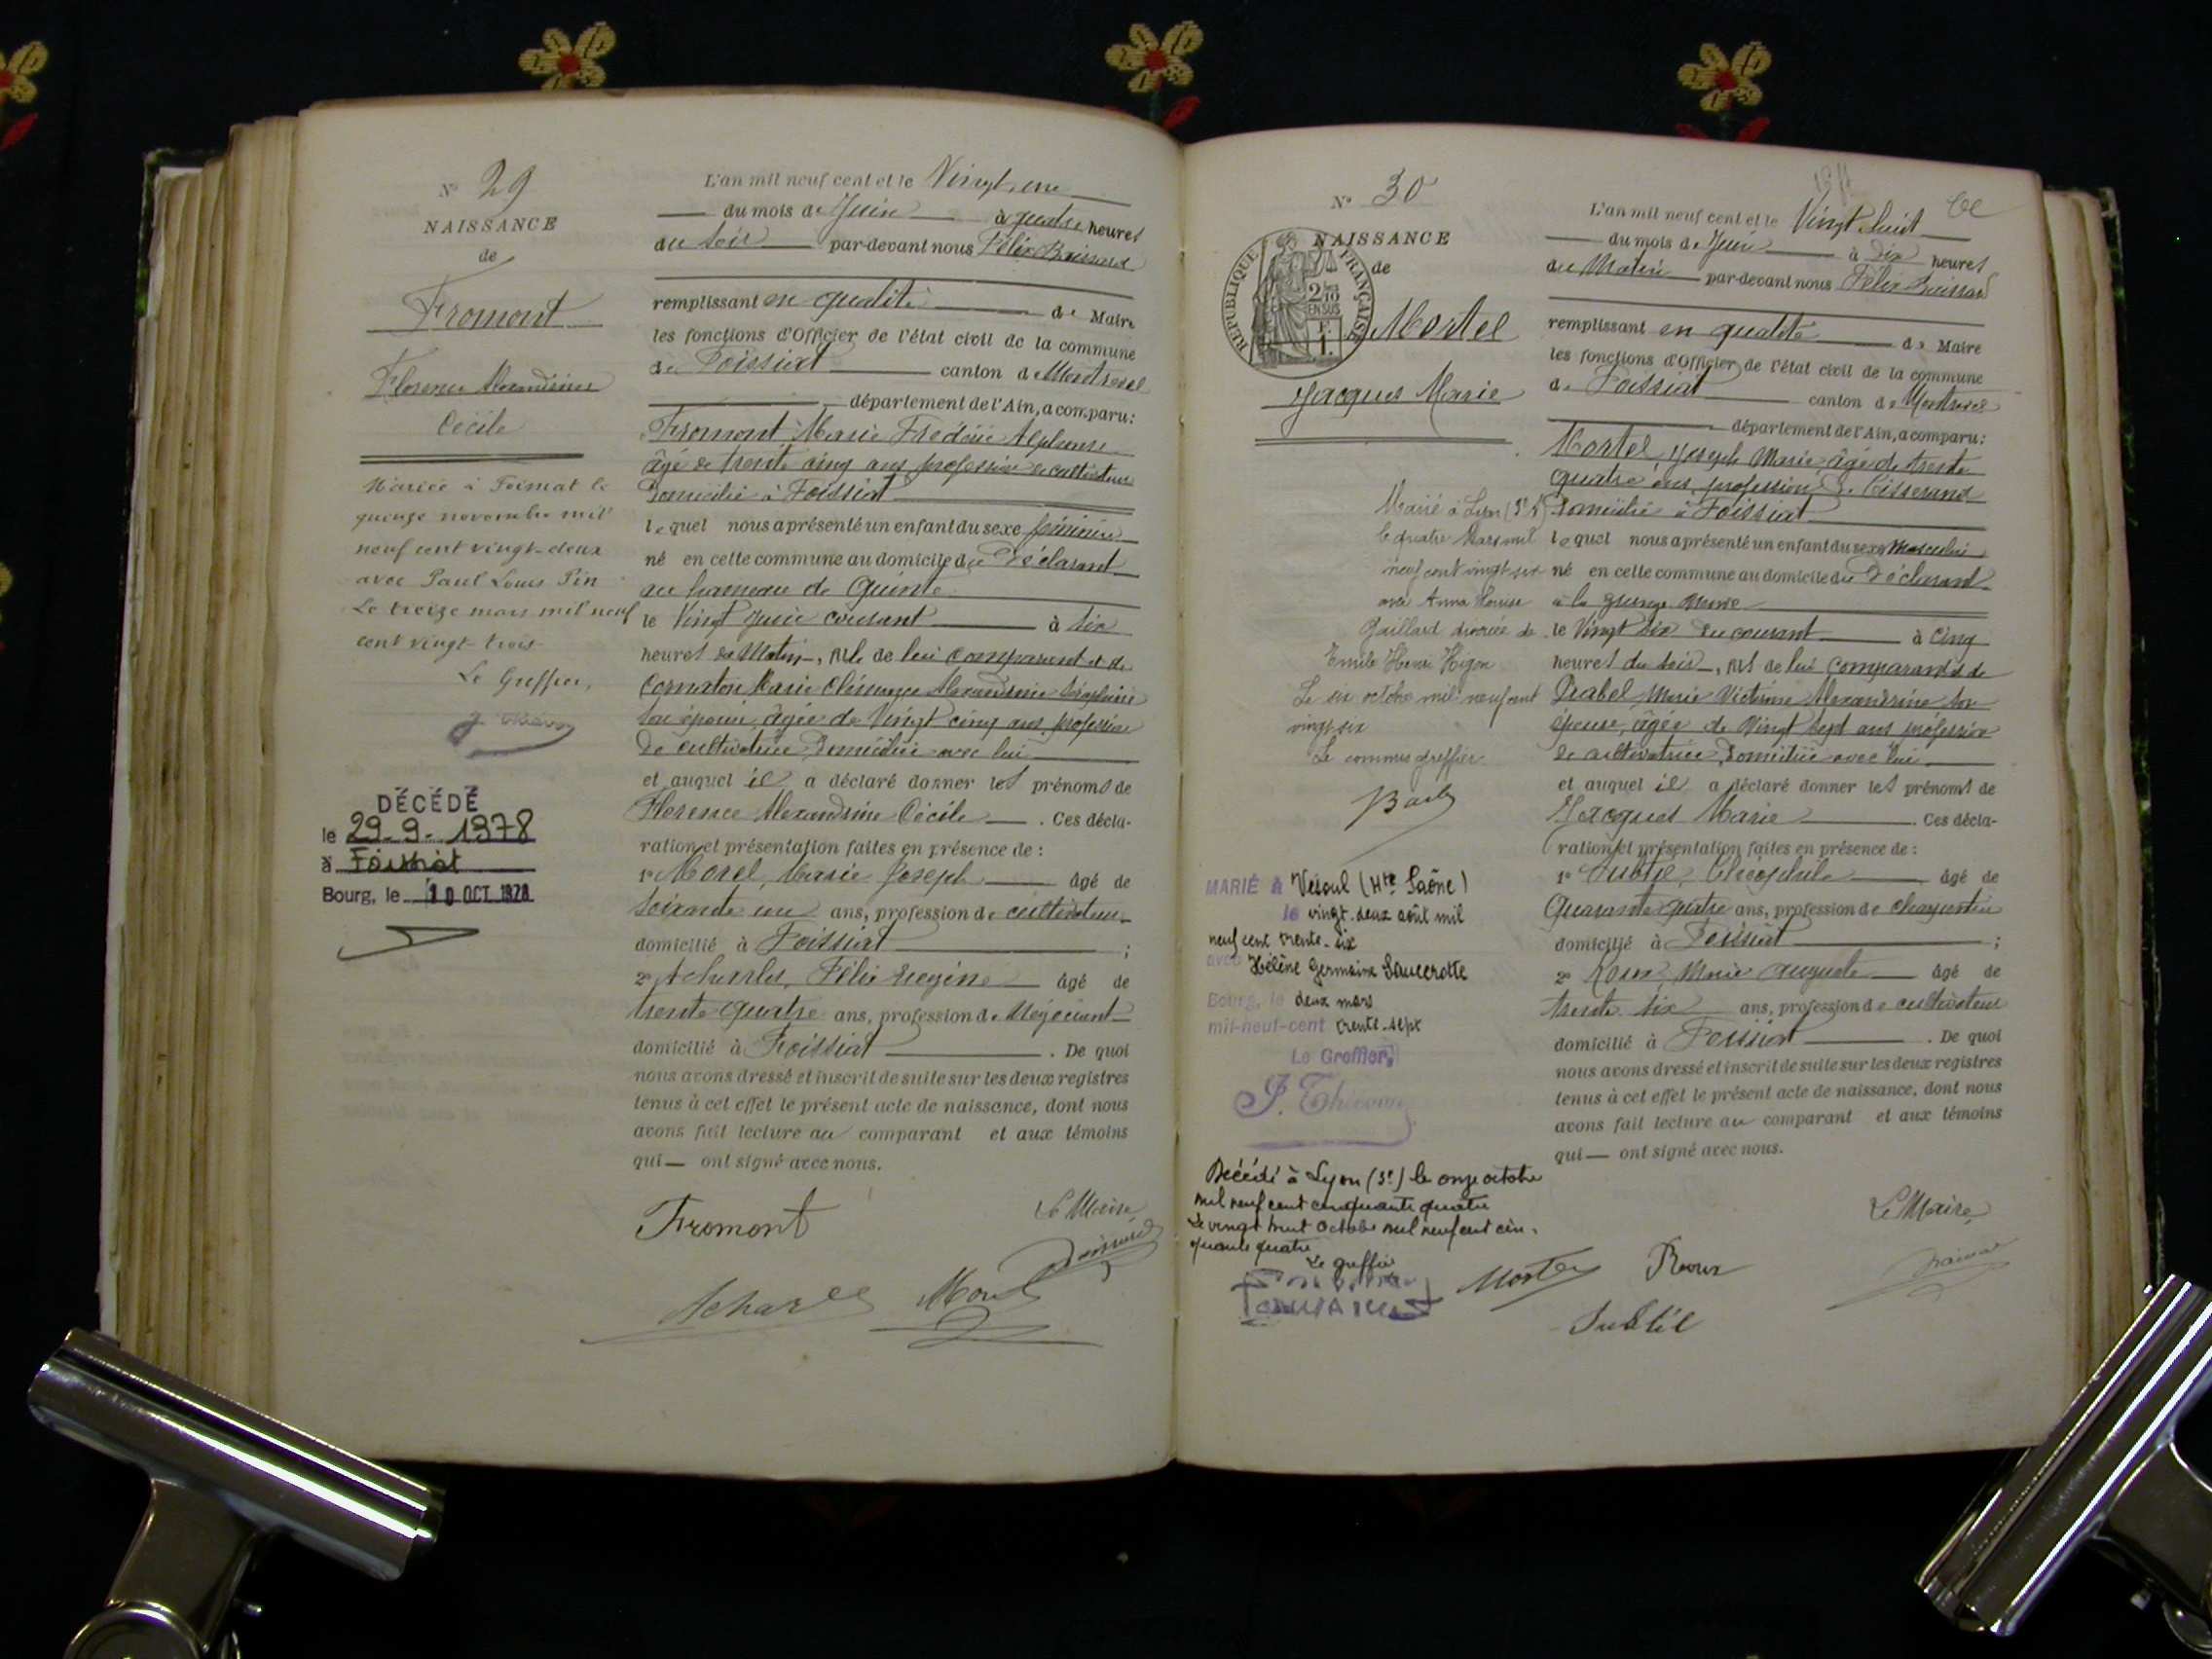 N° 29
NAISSANCE
de
Fromont
Florence Alexandrine
Cécile
Mariée à Foissiat le
quinze novembre mil
neuf cent vingt-deux
avec Paul Louis Pin
Le treize mars mil neuf
cent vingt-trois
Le Greffier,
DÉCÉDÉ
le 29-9-1978
à Foissiat
Bourg, le 10 OCT. 1978
L'an mil neuf cent et le Vingt un
du mois de Juin à quatre heures
du soir par-devant nous Félix
remplissant en qualité de Maire
les fonctions d'Officier de l'état civil de la commune
de Foissiat canton de Montrevel
département de l'Ain, a comparu:
Fromont Marie Frédéric Alphonse
âgé de trente cinq ans profession de cultivateur
domicilié à Foissiat
lequel nous a présenté un enfant du sexe féminin
né en cette commune au domicile du déclarant
au hameau de Quinte
le Vingt Juin courant à six
heures du Matin, né de lui comparant et de
Marie Clémence Alexandrine Séraphine
son épouse, âgée de Vingt cinq ans, profession
de cultivatrice domiciliée avec lui
et auquel il a déclaré donner les prénoms de
Florence Alexandrine Cécile. Ces décla-
ration et présentation faites en présence de :
1° Morel, Marie Joseph âgé de
soixante un ans, profession de cultivateur
domicilié à Foissiat ;
2° Félix Eugène âgé de
trente quatre ans, profession de Négociant
domicilié à Foissiat. De quoi
nous avons dressé et inscrit de suite sur les deux registres
tenus à cet effet le présent acte de naissance, dont nous
avons fait lecture au comparant et aux témoins
qui — ont signé avec nous.
Fromont
Le Maire,
Morel
N° 30
NAISSANCE
de
RÉPUBLIQUE FRANÇAISE
2/10 EN SUS
Mortel
Jacques Marie
Marié à Lyon
le quatre Mars mil
neuf cent vingt-six
avec Anna Louise
Gaillard divorcée de
Emile Henri
Le six octobre mil neuf cent
vingt six
Le commis greffier
MARIÉ à Vesoul (Hte Saône)
le vingt-deux août mil
neuf cent trente-six
avec Hélène Germaine Saucerotte
Bourg, le deux mars
mil-neuf-cent trente-sept
Le Greffier,
Décédé à Lyon (3e) le onze octobre
mil neuf cent cinquante quatre
Le vingt huit octobre mil neuf cent cin-
quante quatre
Le greffier
L'an mil neuf cent et le Vingt huit
du mois de Juin à Dix heures
du Matin par-devant nous Félix
remplissant en qualité de Maire
les fonctions d'Officier de l'état civil de la commune
de Foissiat canton de Montrevel
département de l'Ain, a comparu:
Mortel Joseph Marie âgé de trente
quatre ans, profession de Tisserand
domicilié à Foissiat
lequel nous a présenté un enfant du sexe Masculin
né en cette commune au domicile du Déclarant
à la grange
le Vingt six du courant à Cinq
heures du soir, né de lui comparant et de
Marie Victorine Alexandrine son
épouse, âgée de Vingt sept ans profession
de cultivatrice, domiciliée avec lui
et auquel il a déclaré donner les prénoms de
Jacques Marie. Ces décla-
ration et présentation faites en présence de :
1° Subtil, Théophile âgé de
Quarante quatre ans, profession de charpentier
domicilié à Foissiat ;
2° Roux, Marie Auguste âgé de
trente six ans, profession de cultivateur
domicilié à Foissiat. De quoi
nous avons dressé et inscrit de suite sur les deux registres
tenus à cet effet le présent acte de naissance, dont nous
avons fait lecture au comparant et aux témoins
qui — ont signé avec nous.
Le Maire,
Mortel Roux
Subtil